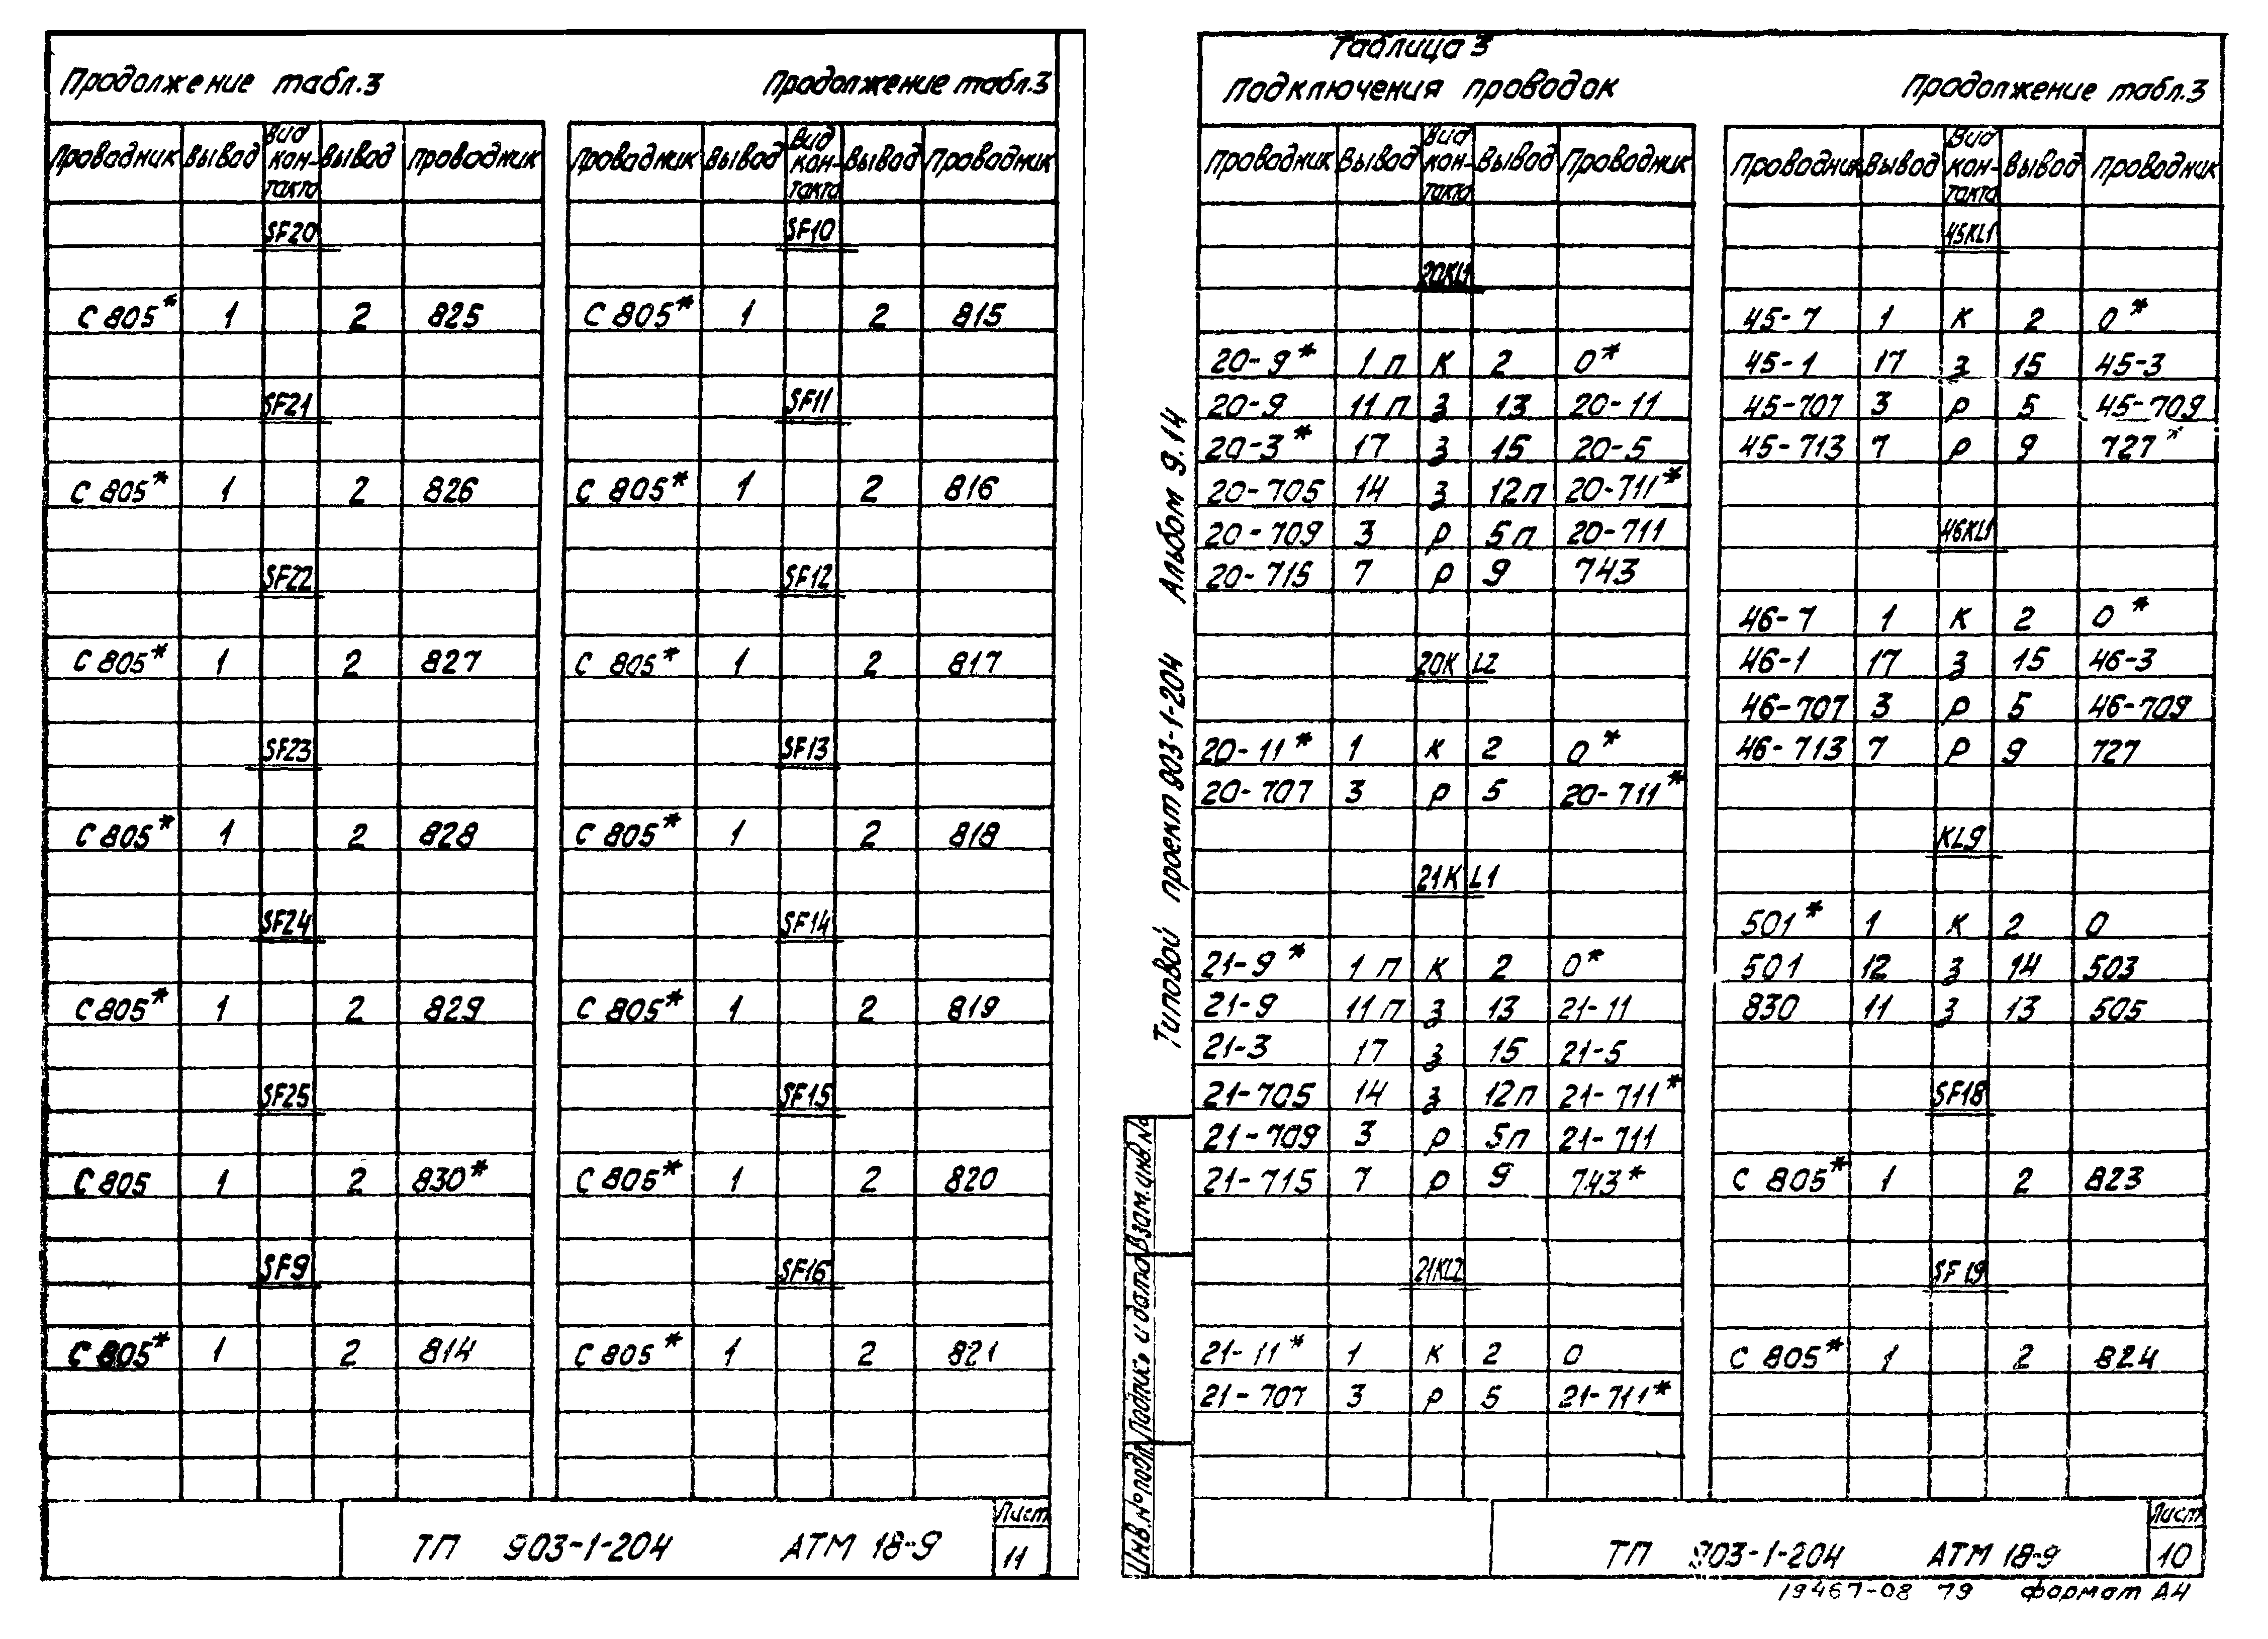 Продолжение табл.3
Проводник Вывод Вид контакта Вывод Проводник
SF20
С 805* 1 2 825
SF21
С 805* 1 2 826
SF22
С 805* 1 2 827
SF23
С 805* 1 2 828
SF24
С 805* 1 2 829
SF25
С 805 1 2 830*
SF9
С 805* 1 2 814
Продолжение табл.3
Проводник Вывод Вид контакта Вывод Проводник
SF10
С 805* 1 2 815
SF11
С 805* 1 2 816
SF12
С 805* 1 2 817
SF13
С 805* 1 2 818
SF14
С 805* 1 2 819
SF15
С 805* 1 2 820
SF16
С 805* 1 2 821
ТП 903-1-204 АТМ 18-9
Лист
11
Типовой проект 903-1-204 Альбом 9.14
Таблица 3
Подключения проводок
Проводник Вывод Вид контакта Вывод Проводник
20KL1
20-9* 1п К 2 0*
20-9 11п З 13 20-11
20-3* 17 З 15 20-5
20-705 14 З 12п 20-711*
20-709 3 Р 5п 20-711
20-715 7 Р 9 743
20KL2
20-11* 1 К 2 0*
20-707 3 Р 5 20-711*
21KL1
21-9* 1п К 2 0*
21-9 11п З 13 21-11
21-3 17 З 15 21-5
21-705 14 З 12п 21-711*
21-709 3 Р 5п 21-711
21-715 7 Р 9 743*
21KL2
21-11* 1 К 2 0
21-707 3 Р 5 21-711*
Продолжение табл.3
Проводник Вывод Вид контакта Вывод Проводник
45KL1
45-7 1 К 2 0*
45-1 17 З 15 45-3
45-707 3 Р 5 45-709
45-713 7 Р 9 727*
46KL1
46-7 1 К 2 0*
46-1 17 З 15 46-3
46-707 3 Р 5 46-709
46-713 7 Р 9 727
KL9
501* 1 К 2 0
501 12 З 14 503
830 11 З 13 505
SF18
С 805* 1 2 823
SF19
С 805* 1 2 824
Инв.№подл. Подпись и дата Взам.инв.№
ТП 903-1-204 АТМ 18-9
Лист
10
19467-08 79 формат А4